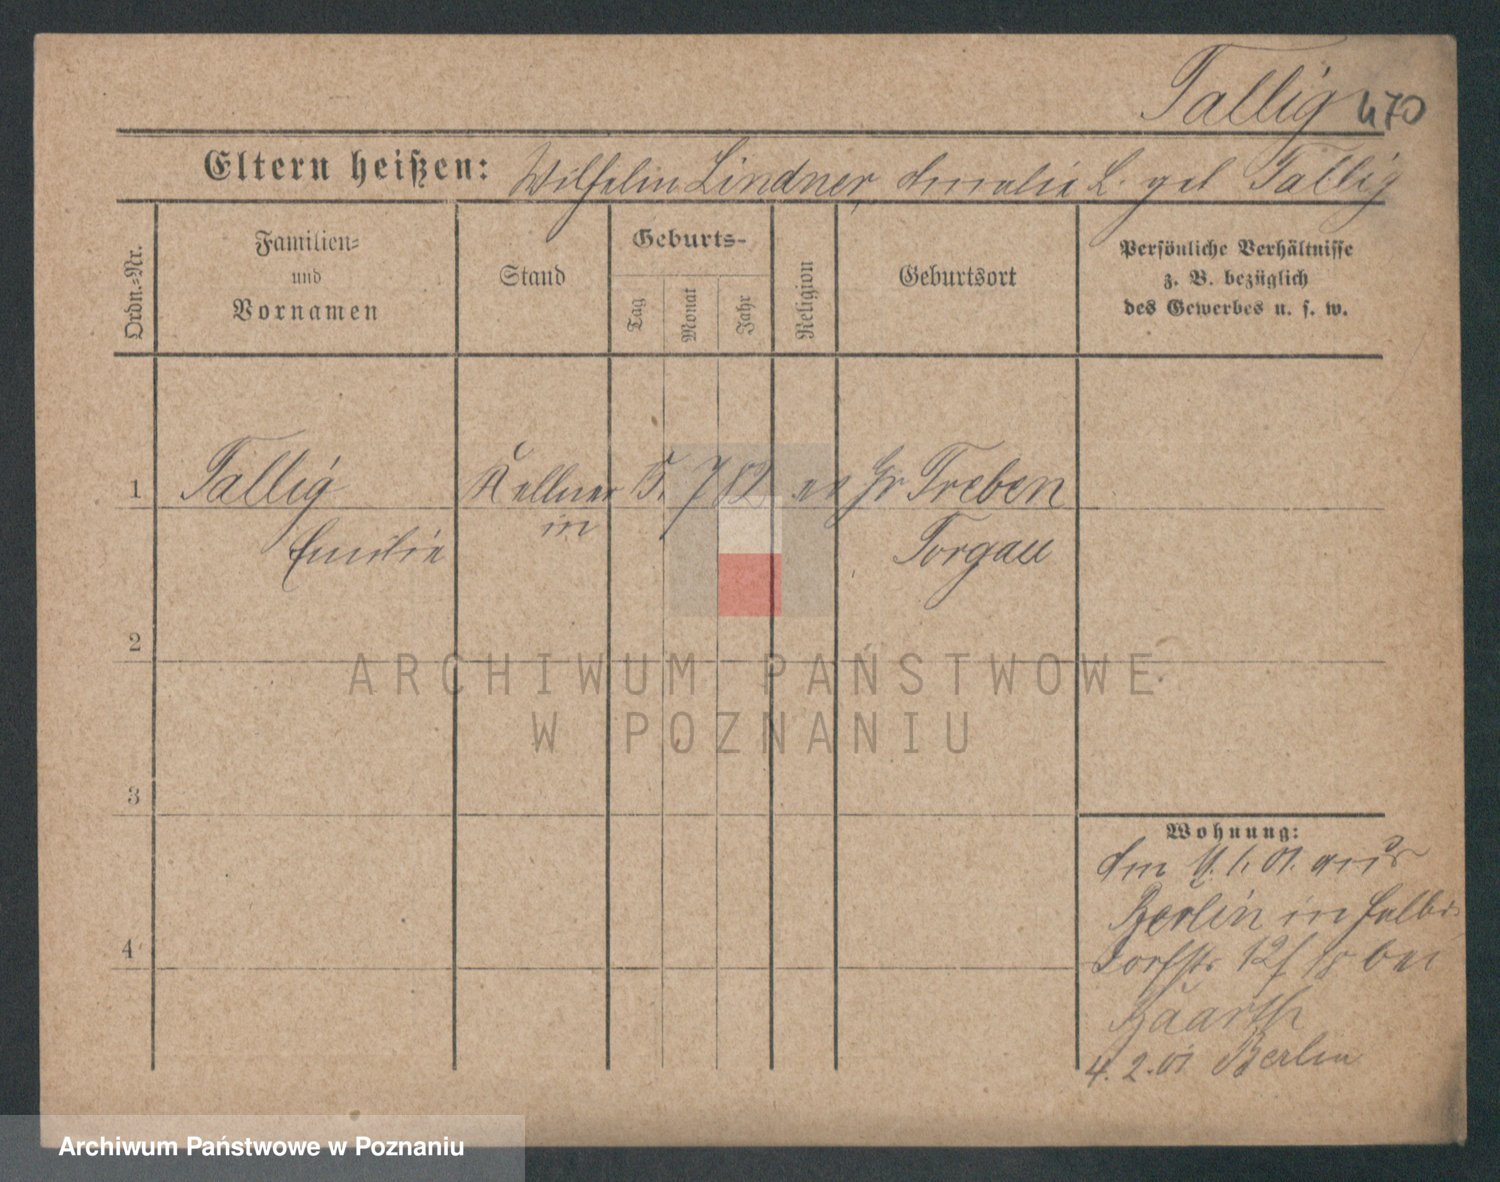 Tallig 470
Eltern heißen: Wilhelm Lindner, Amalie L. geb Tallig
Ordn.-Nr.
Familien-
und
Vornamen
Stand
Geburts-
Tag
Monat
Jahr
Religion
Geburtsort
Persönliche Verhältnisse
z. B. bezüglich
des Gewerbes u. s. w.
1 Tallig Kellner 15. 7 82 ev Gr Treben
Emilie in Torgau
2
3
4
Wohnung:
Am 9. 1. 01. aus
Berlin in Halb
dorfstr 12 bei
Baarth
4. 2. 01 Berlin
ARCHIWUM PAŃSTWOWE
W POZNANIU
Archiwum Państwowe w Poznaniu